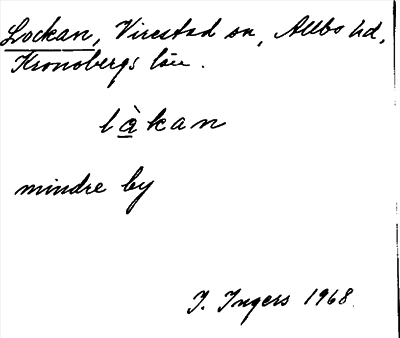 Lockan, Virestad sn, Allbo hd,
Kronobergs län.
làkan
mindre by
I. Ingers 1968.